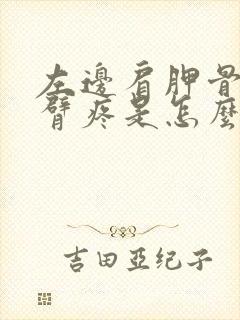 左邊肩胛骨
臂疼是怎麼
吉田亞纪子